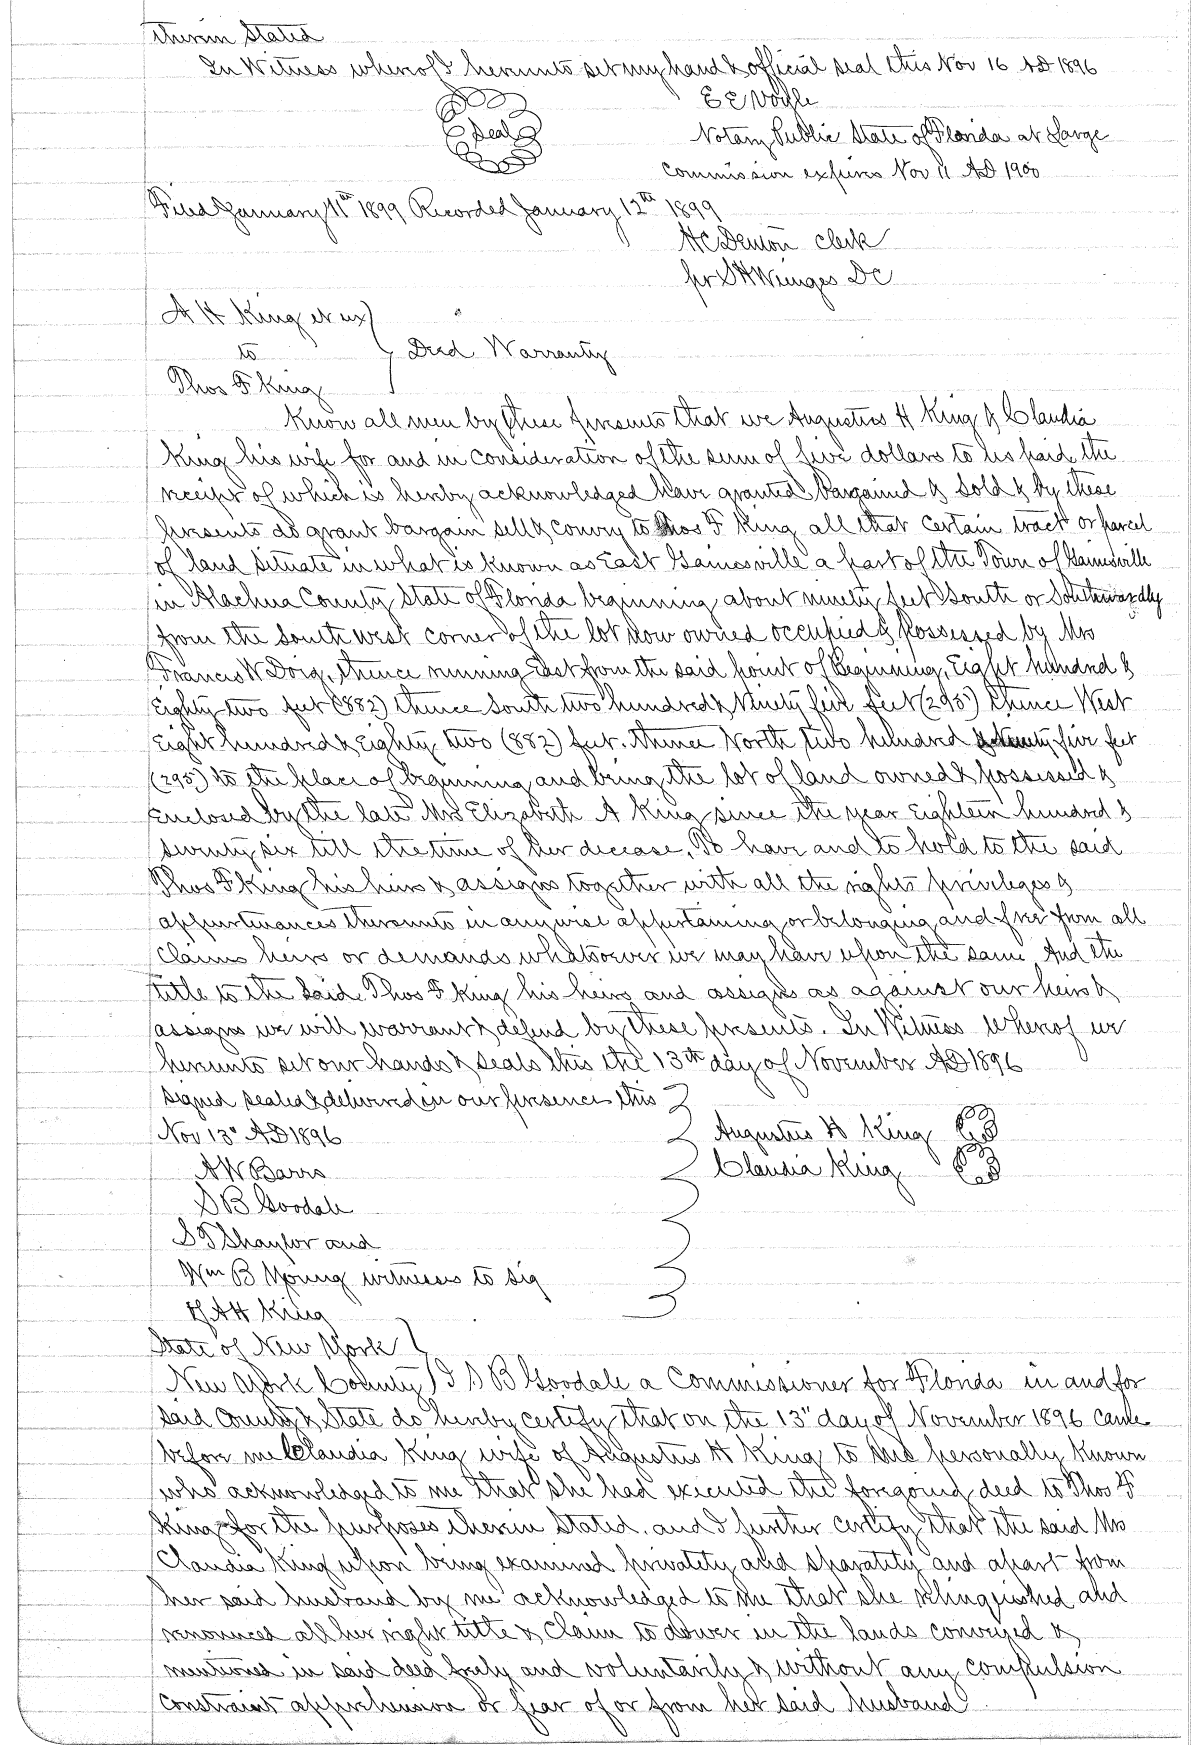 therein Stated
In Witness whereof I hereunto set my hand & official seal this Nov 16 AD 1896
E E Voyle
Seal
Notary Public State of Florida at Large
Commission expires Nov 11 AD 1900
Filed January 11th 1899 Recorded January 12th 1899
H C Denton Clerk
pr S H Wienges DC
A H King et ux
to
Deed Warranty
Thos F King
Know all men by these presents that we Augustus H King & Claudia
King his wife for and in consideration of the sum of five dollars to us paid the
receipt of which is hereby acknowledged have granted bargained & sold & by these
presents do grant bargain sell & convey to Thos F King all that certain tract or parcel
of land situate in what is known as East Gainesville a part of the Town of Gainesville
in Alachua County State of Florida beginning about ninety feet South or Southwardly
from the South west corner of the lot now owned occupied & possessed by Mrs
Francis W Doig, thence running East from the said point of Beginning, Eight hundred &
Eighty two feet (882) thence South two hundred & Ninety five feet (295) thence West
Eight hundred & Eighty two (882) feet. thence North two hundred & ninety five feet
(295) to the place of beginning and being the lot of land owned & possessed &
Enclosed by the late Mrs Elizabeth A King since the year Eighteen hundred &
seventy six till the time of her decease. To have and to hold to the said
Thos F King his heirs & assigns together with all the rights privileges &
appurtenances thereunto in anywise appertaining or belonging and free from all
Claims heirs or demands whatsoever we may have upon the same And the
title to the said Thos F King his heirs and assigns as against our heirs &
assigns we will warrant & defend by these presents. In Witness Whereof we
hereunto set our hands & seals this the 13th day of November AD 1896
Signed sealed & delivered in our presence this
Nov 13" AD 1896
Augustus H King
A W Barrs
Claudia King
S B Goodale
S T Shaylor and
Wm B Young witnesses to sig
of A H King
State of New York
New York County I S B Goodale a Commissioner for Florida in and for
said County & State do hereby certify that on the 13" day of November 1896 came
before me Claudia King wife of Augustus H King to me personally known
who acknowledged to me that she had executed the foregoing deed to Thos F
King for the purposes therein Stated. and I further certify that the said Mrs
Claudia King upon being examined privately and sparately and apart from
her said husband by me acknowledged to me that she relinquished and
renounced all her right title & claim to dower in the lands conveyed &
mentioned in said deed freely and voluntarily & without any compulsion
Constraint apprehension or fear of or from her said husband.